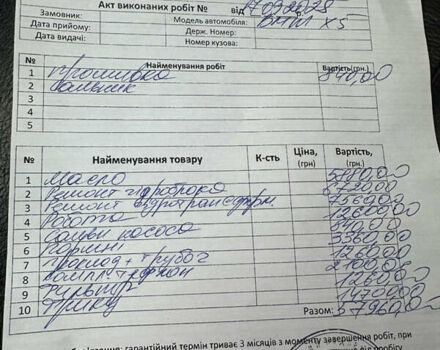 Акт виконаних робіт № від 17.09.2025
Замовник: Модель автомобіля: БМW X5
Дата прийому: Держ. Номер:
Дата видачі: Номер кузова:
№ Найменування робіт Вартість(грн.)
1 Прошивка 840,00
2 Сальник
3
4
5
№ Найменування товару К-сть Ціна, (грн) Вартість, (грн.)
1 Масло 5880,00
2 Ремонт гідроблока 6720,00
3 Ремонт гідротрансформ. 7560,00
4 Робота 12600,00
5 насоса 840,00
6 Поршні 3360,00
7 1260,00
8 Компл тефлон 2100,00
9 Фільтр 1260,00
10 14700,00
Разом: 57960,00
гарантійний термін триває 3 місяців з моменту завершення робіт, при